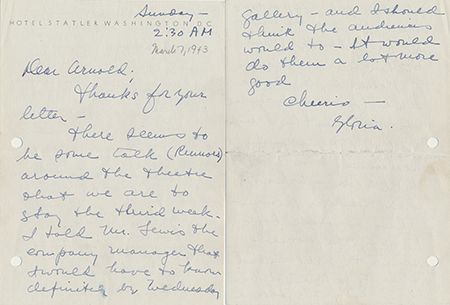 Sunday –
HOTEL STATLER WASHINGTON D.C.
2:30 AM
March 7, 1943
Dear Arnold,
Thanks for your
letter –
There seems to
be some talk (Rumors)
around the theatre
that we are to
stay the third week.
I told Mr. Lewis the
company manager that
I would have to know
definite by Wednesday
gallery – and I should
think the audiences
would to – It would
do them a lot more
good
Cheerio –
Gloria.